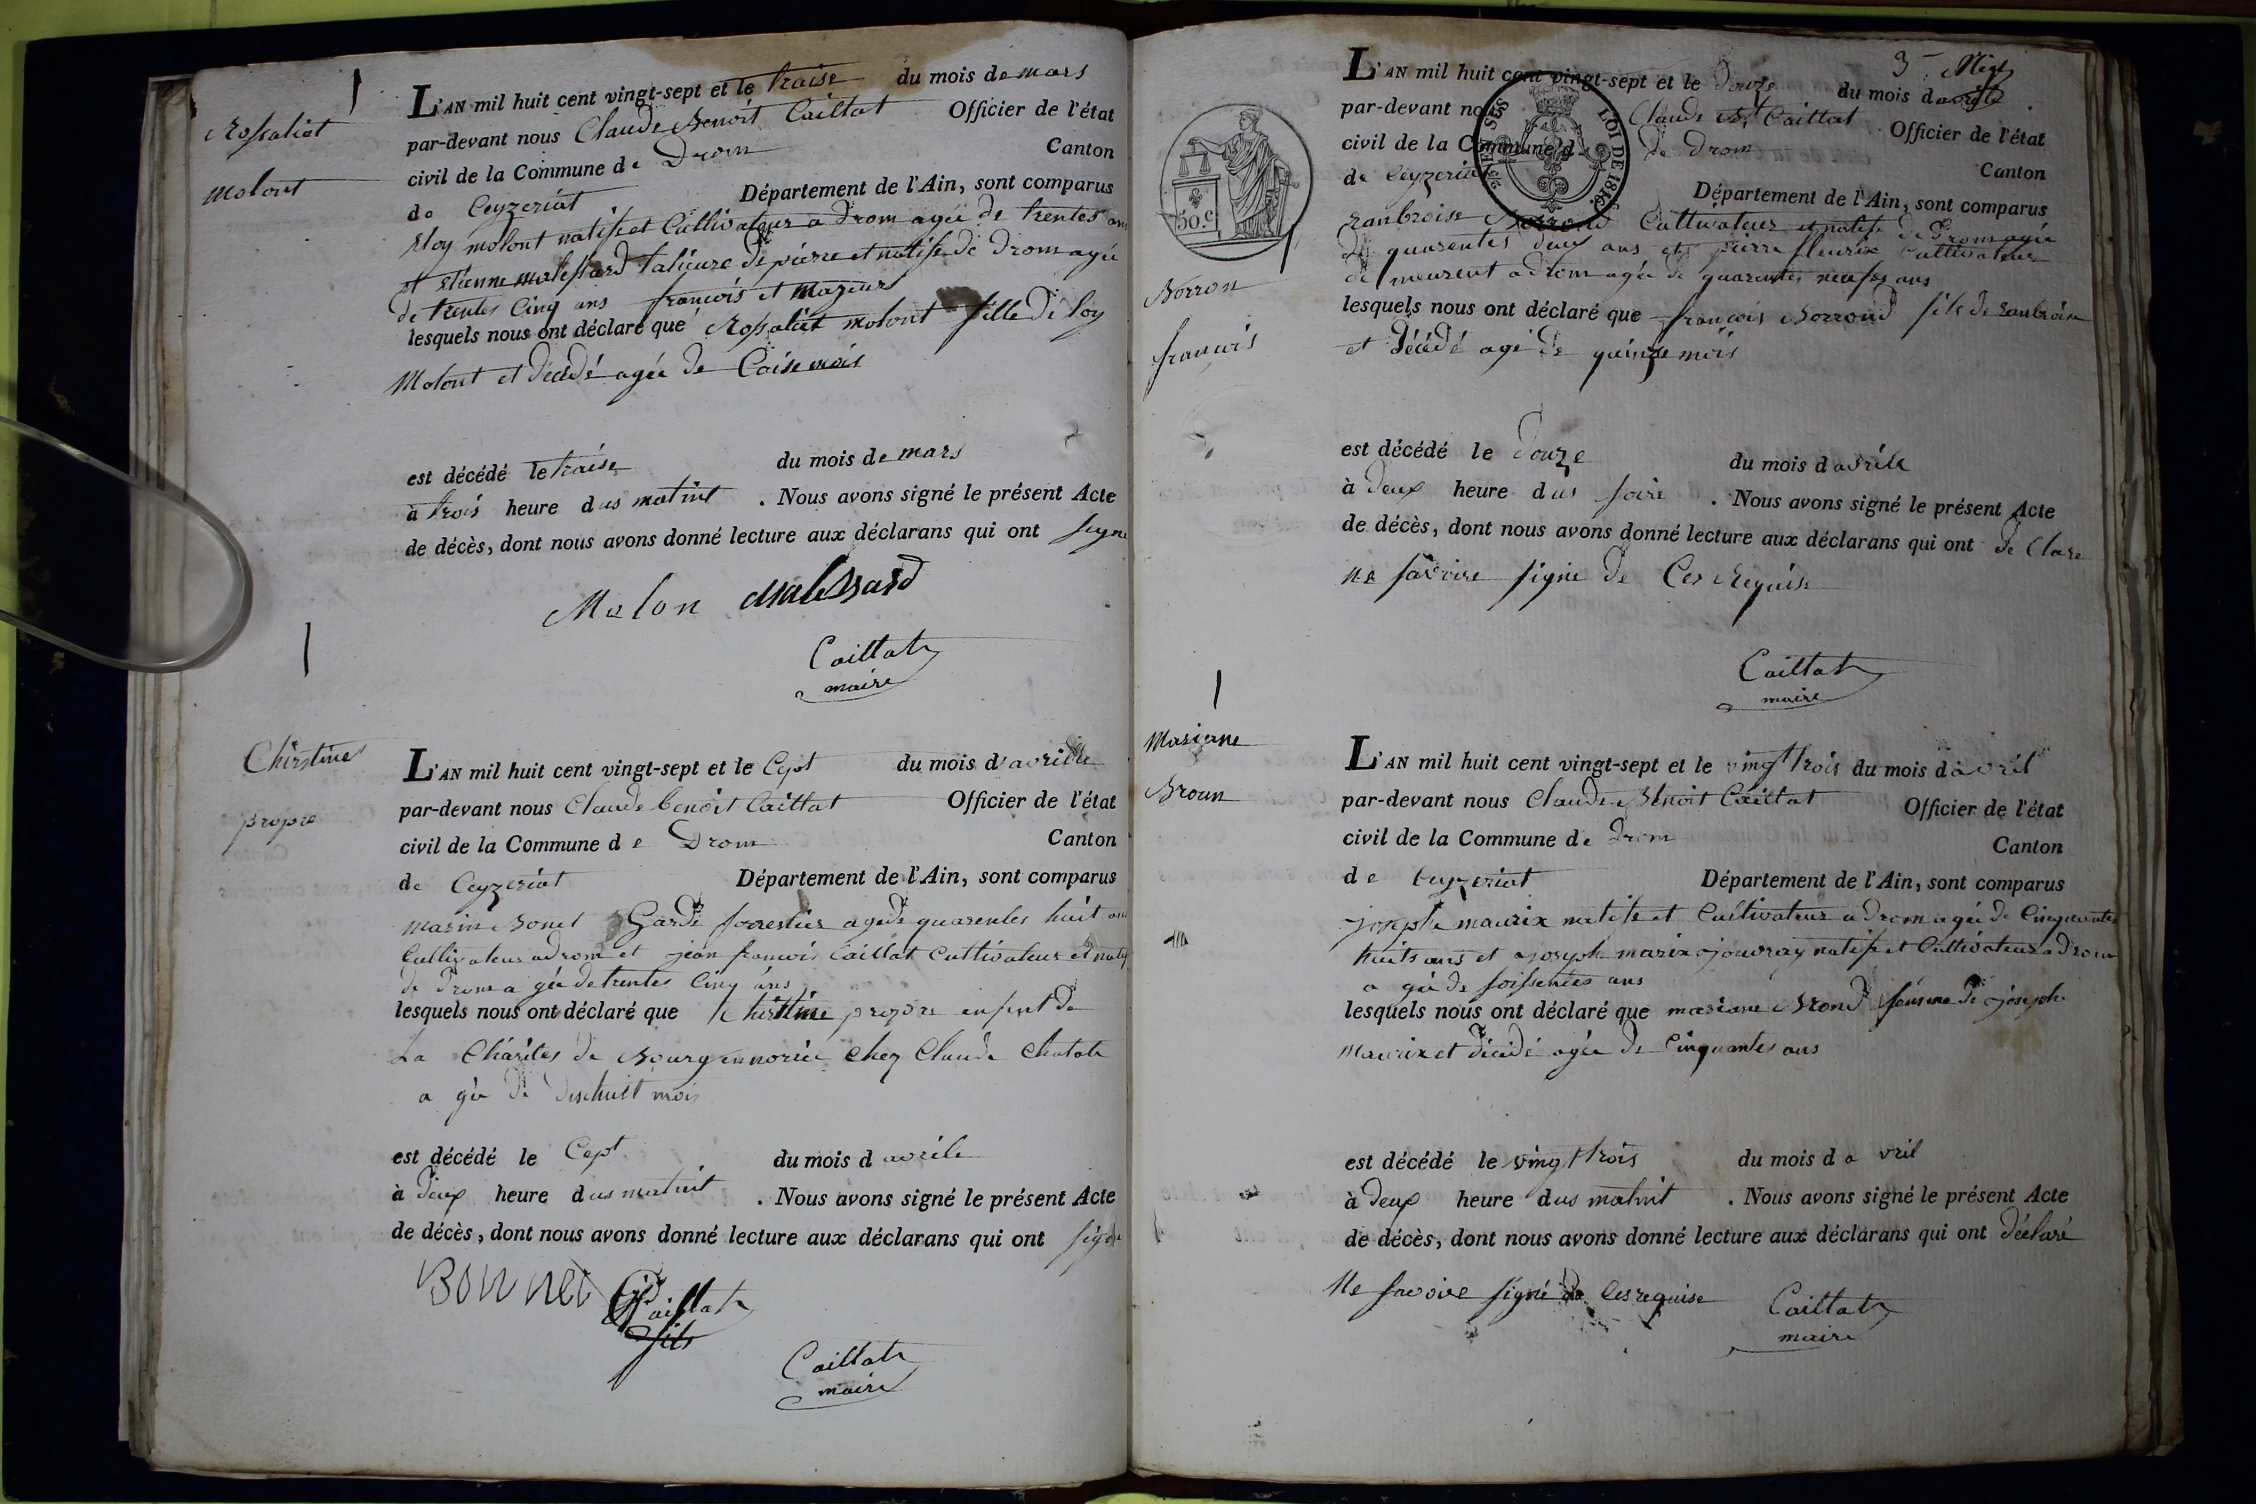 Rosaliat
Molont
L'AN mil huit cent vingt-sept et le traise du mois de mars
par-devant nous Claude Benoit Caillat Officier de l'état
civil de la Commune de Drom Canton
de Ceyzeriat Département de l'Ain, sont comparus
Eloy molont natife et Cultivateur a Drom agée de trentes ans
et Etienne malessard talieure de pierre et natife de Drom agée
de trentes Cinq ans francois et mageurs
lesquels nous ont déclaré que Rosaliat molont fille d'Eloy
Molont et décédé agée de Caise mois
est décédé le traise du mois de mars
à trois heure dus matint . Nous avons signé le présent Acte
de décès, dont nous avons donné lecture aux déclarans qui ont signe
Molon malessard
Caillat
maire
Chirstine
propre
L'AN mil huit cent vingt-sept et le Cept du mois d'avrille
par-devant nous Claude benoit Caillat Officier de l'état
civil de la Commune de Drom Canton
de Ceyzeriat Département de l'Ain, sont comparus
marin Bonet Garde forrestier agede quarentes huit ans
Cultivateur a Drom et jean francois Caillat Cultivateur et natif
de Drom a gée de trentes Cinq ans
lesquels nous ont déclaré que Chirstine propre enfent de
La Charites de Bourg ennoricé Chez Claude Chatat
a gée de dischuit mois
est décédé le Cept du mois d avrile
à deux heure dus matint . Nous avons signé le présent Acte
de décès, dont nous avons donné lecture aux déclarans qui ont signe
BONNET Caillat
fils
Caillat
maire
3
50 c
LOI DE 1816
Borron
francois
L'AN mil huit cent vingt-sept et le douze du mois d avrile
par-devant nous Claude Bt Caillat Officier de l'état
civil de la Commune d de Drom Canton
de Ceyzeriat Département de l'Ain, sont comparus
ranbroise Borrond Cultivateur et natife de Drom agée
de quarentes deux ans et pierre fleurix Cultivateur
de meurent a Drom agée de quarentes neufes ans
lesquels nous ont déclaré que francois Borrond fils de ranbroise
et décédé agé de quinze mois
est décédé le douze du mois d avrile
à deux heure dus soire . Nous avons signé le présent Acte
de décès, dont nous avons donné lecture aux déclarans qui ont de Clare
Ne savoire signe de Ces Requise
Caillat
maire
Mariane
Broun
L'AN mil huit cent vingt-sept et le vingt trois du mois d avril
par-devant nous Claude Benoit Caillat Officier de l'état
civil de la Commune de Drom Canton
de Ceyzeriat Département de l'Ain, sont comparus
joseph maurix natife et Cultivateur a Drom agée de Cinquantes
huits ans et joseph marix jouvray natife et Cultivateur a Drom
a gée de soissentes ans
lesquels nous ont déclaré que mariane Brond femme de joseph
maurix et décédé agée de Cinquantes ans
est décédé le vingt trois du mois d a vril
à deux heure dus matint . Nous avons signé le présent Acte
de décès, dont nous avons donné lecture aux déclarans qui ont déclaré
Ne savoire signé de Ces requise
Caillat
maire